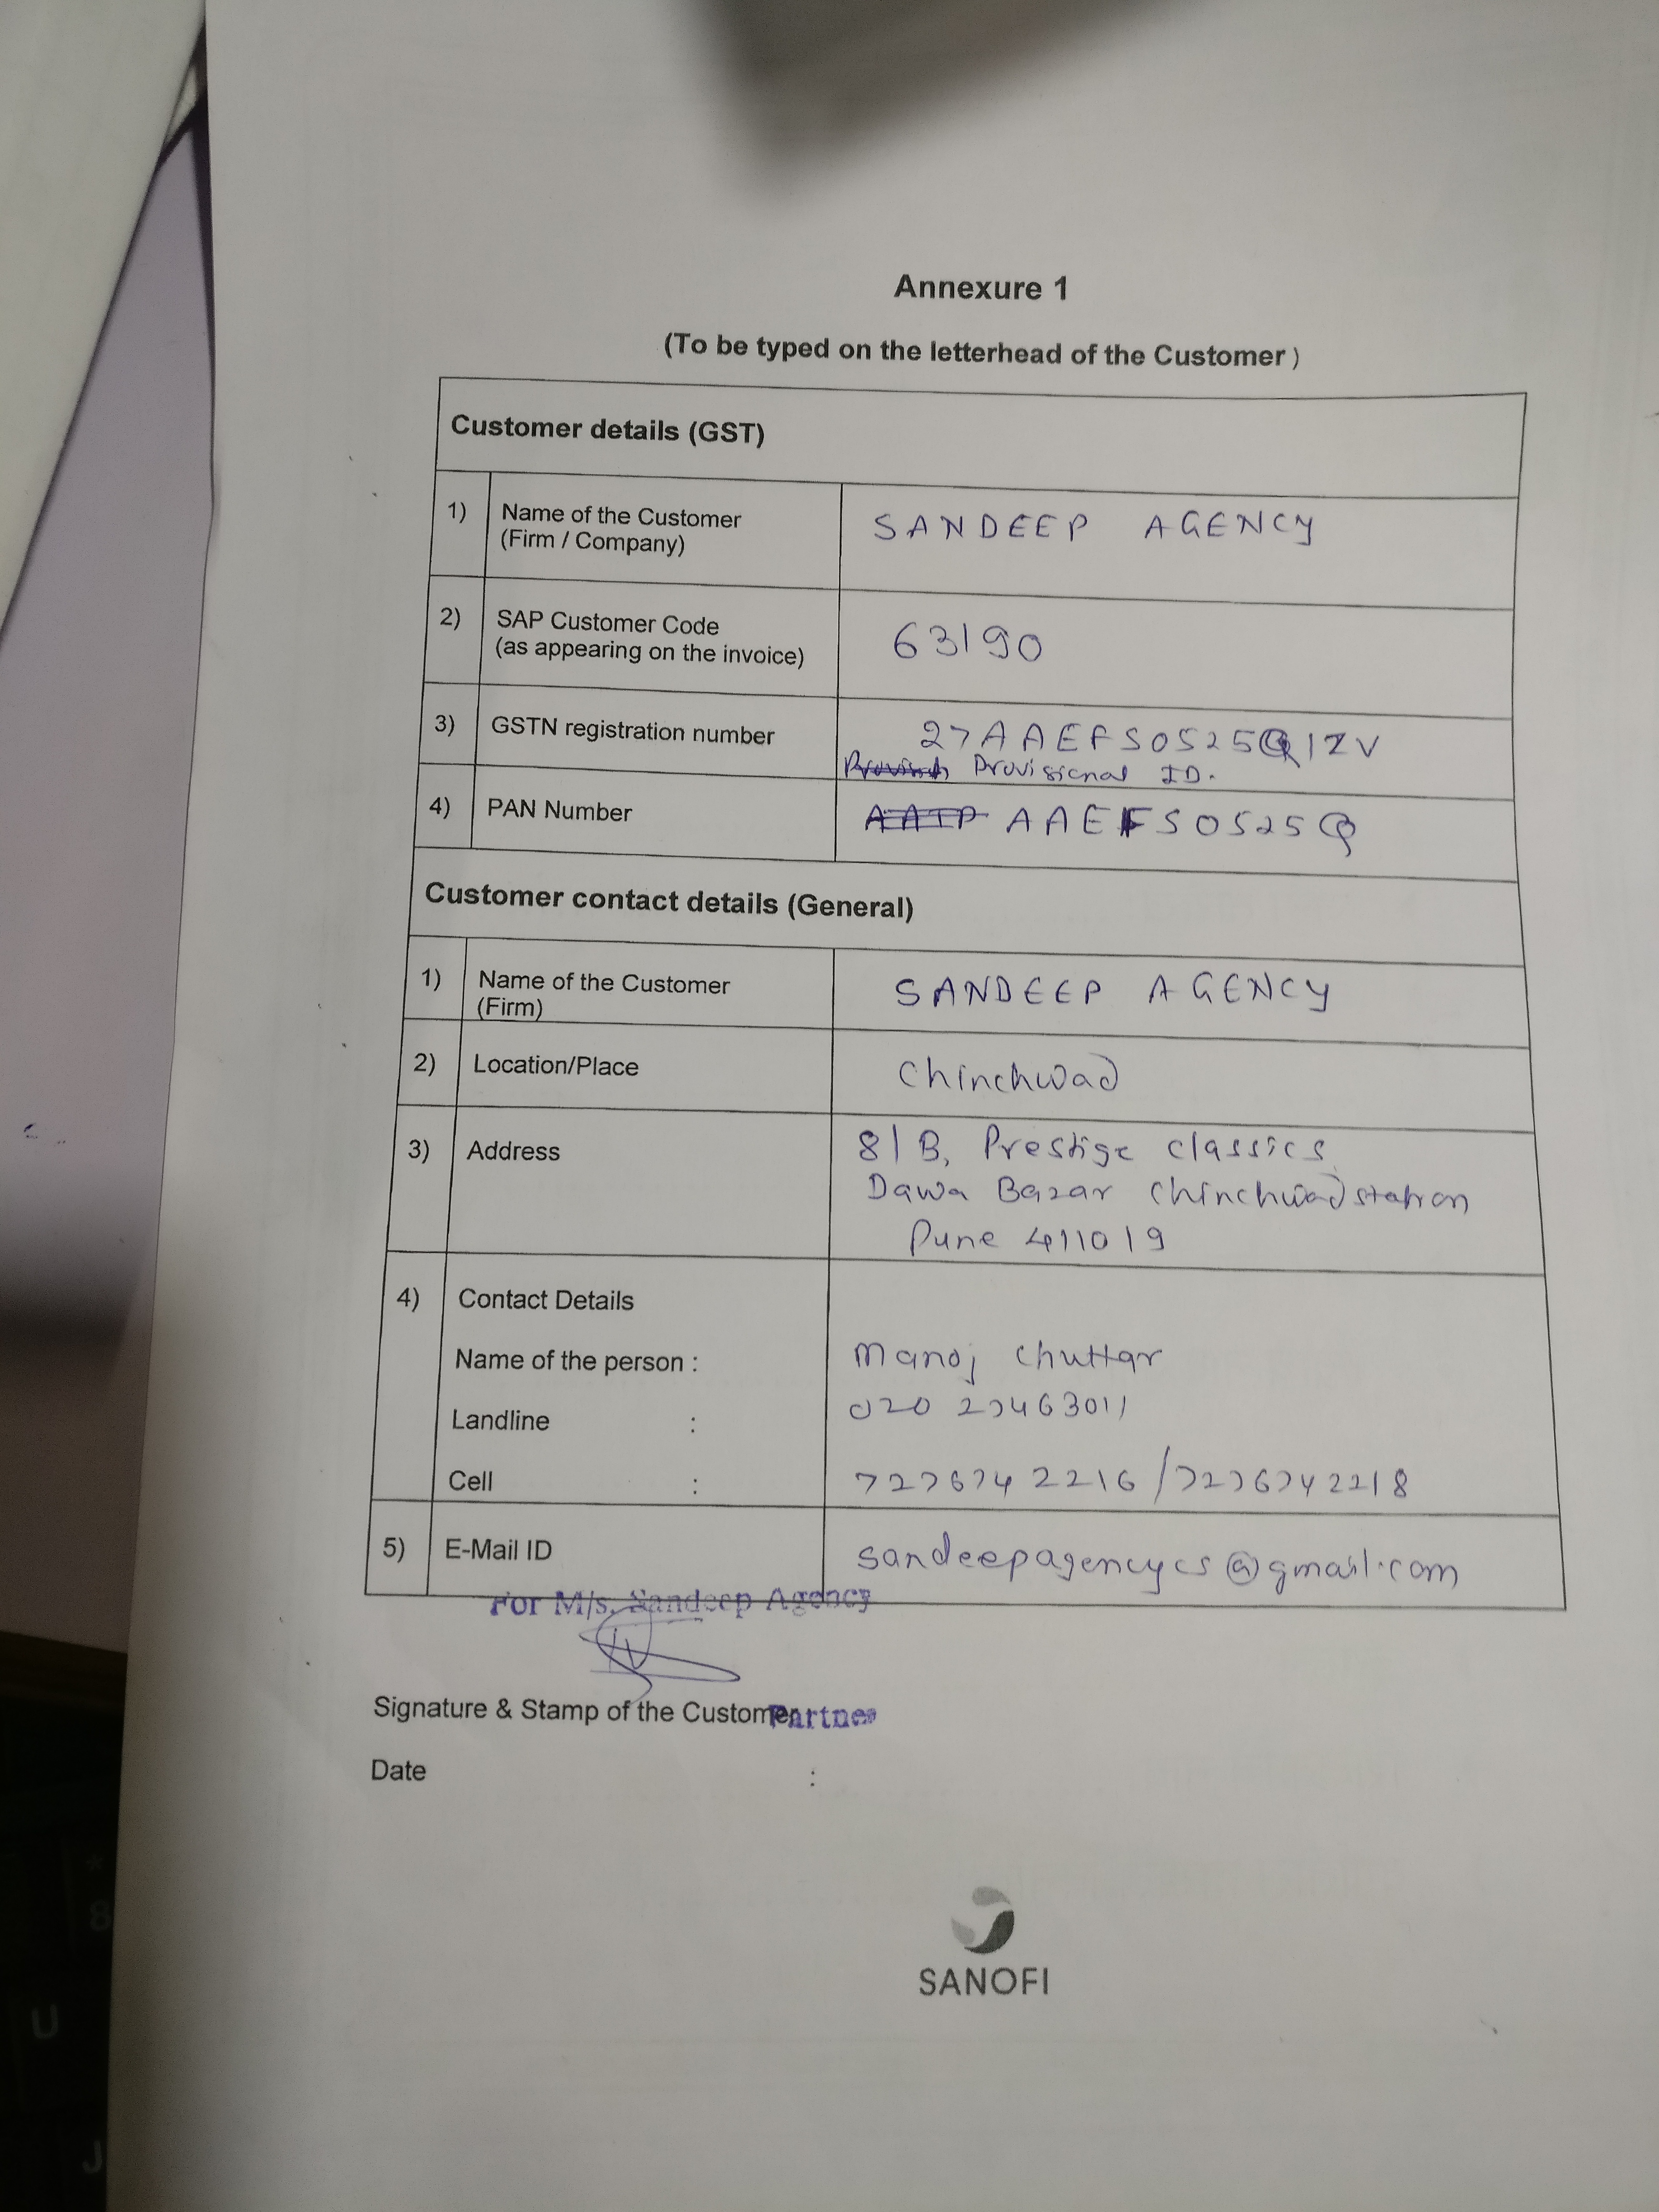 Annexure 1
(To be typed on the letterhead of the Customer)
Customer details (GST)
1) Name of the Customer (Firm / Company) SANDEEP AGENCY
2) SAP Customer Code (as appearing on the invoice) 63190
3) GSTN registration number 27AAEFS0525Q1ZV
Provisional ID.
4) PAN Number AAEFS0525Q
Customer contact details (General)
1) Name of the Customer (Firm) SANDEEP AGENCY
2) Location/Place Chinchwad
3) Address 81B, Prestige classics
Dawa Bazar Chinchwad station
Pune 411019
4) Contact Details
Name of the person : Manoj Chuttar
Landline : 020 27463011
Cell : 7276742216/7276742218
5) E-Mail ID sandeepagencycs@gmail.com
For M/s. Sandeep Agency
Signature & Stamp of the Customer Partner
Date :
SANOFI
* 8
U
J